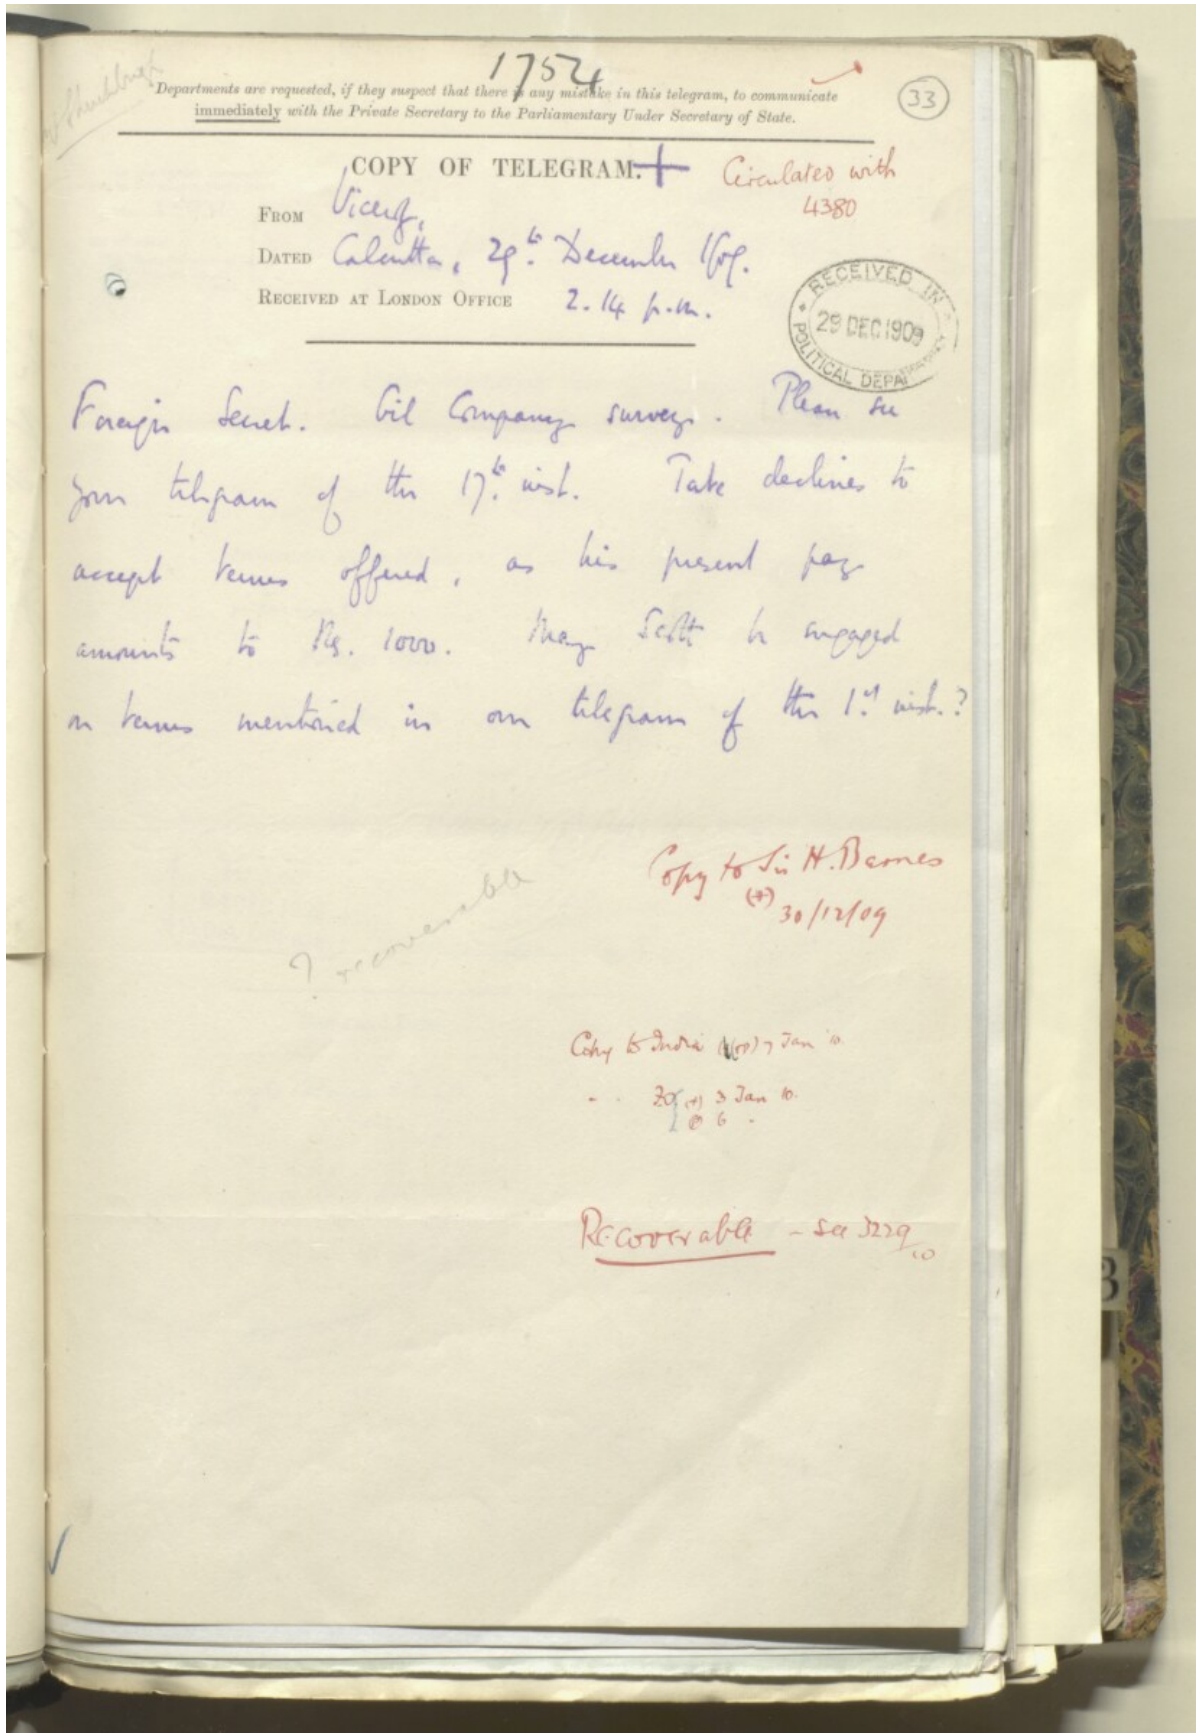 1754
Departments are requested, if they suspect that there is any mistake in this telegram, to communicate
immediately with the Private Secretary to the Parliamentary Under Secretary of State.
33
COPY OF TELEGRAM.
Circulated with
4380
FROM Viceroy,
DATED Calcutta, 29th December 1909.
RECEIVED AT LONDON OFFICE 2.14 p.m.
RECEIVED IN
29 DEC 1909
POLITICAL DEPARTMENT
Foreign Secret. Oil Company survey. Please see
your telegram of the 17th inst. Tate declines to
accept terms offered, as his present pay
amounts to Rs. 1000. May Scott be engaged
on terms mentioned in our telegram of the 1st inst.?
Copy to Sir H. Barnes
(+) 30/12/09
? recoverable
Copy to India 7 Jan 10.
" " FO (+) 3 Jan 10.
6 "
Recoverable - see 3229/10